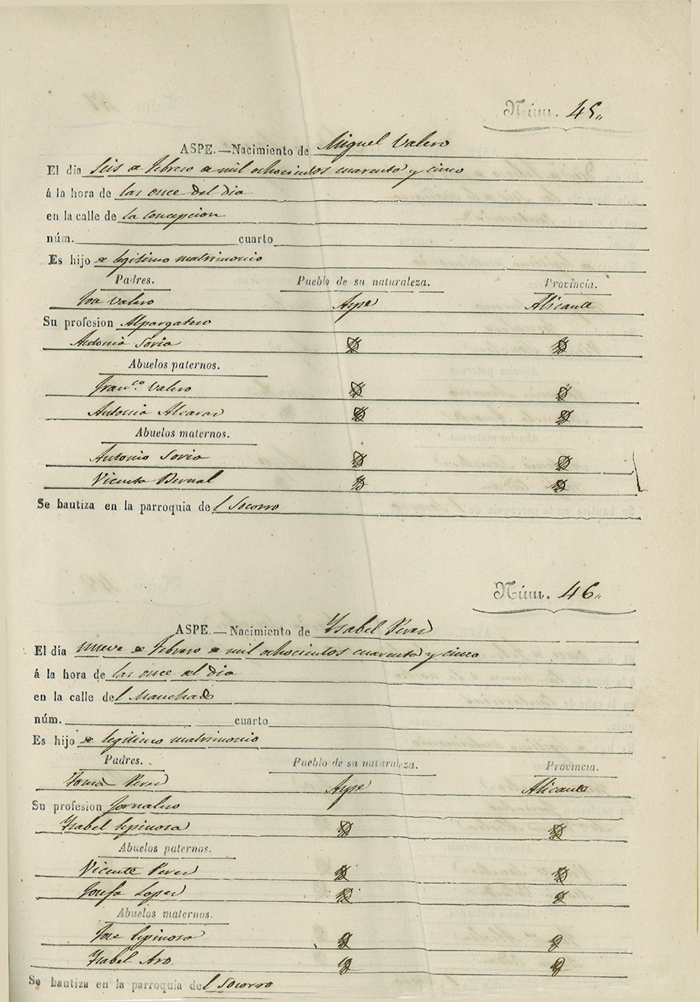 Núm. 45.
ASPE.—Nacimiento de Miguel Valero
El dia seis de Febrero de mil ochocientos cuarenta y cinco
á la hora de las once del dia
en la calle de la Concepcion
núm. cuarto
Es hijo de legitimo matrimonio
Padres. Pueblo de su naturaleza. Provincia.
Jose Valero Aspe Alicante
Su profesion Alpargatero
Antonia Soria Id Id
Abuelos paternos.
Franco. Valero Id Id
Antonia Alcaraz Id Id
Abuelos maternos.
Antonio Soria Id Id
Vicenta Bernal Id Id
Se bautiza en la parroquia del Socorro
Núm. 46.
ASPE.—Nacimiento de Ysabel Perez
El día nueve de Febrero de mil ochocientos cuarenta y cinco
á la hora de las once del dia
en la calle del
núm. cuarto
Es hijo de legitimo matrimonio
Padres. Pueblo de su naturaleza. Provincia.
Tomas Perez Aspe Alicante
Su profesion Jornalero
Ysabel Espinosa Id Id
Abuelos paternos.
Vicente Perez Id Id
Josefa Lopez Id Id
Abuelos maternos.
Jose Espinosa Id Id
Ysabel Id Id
Se bautiza en la parroquia del Socorro